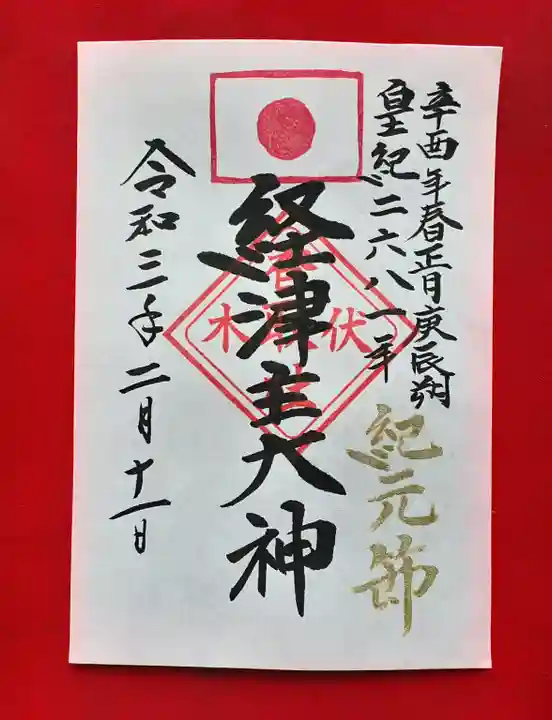 辛酉年春正月庚辰朔
皇紀二六八一年
紀元節
経津主大神
伏木
令和三年二月十一日